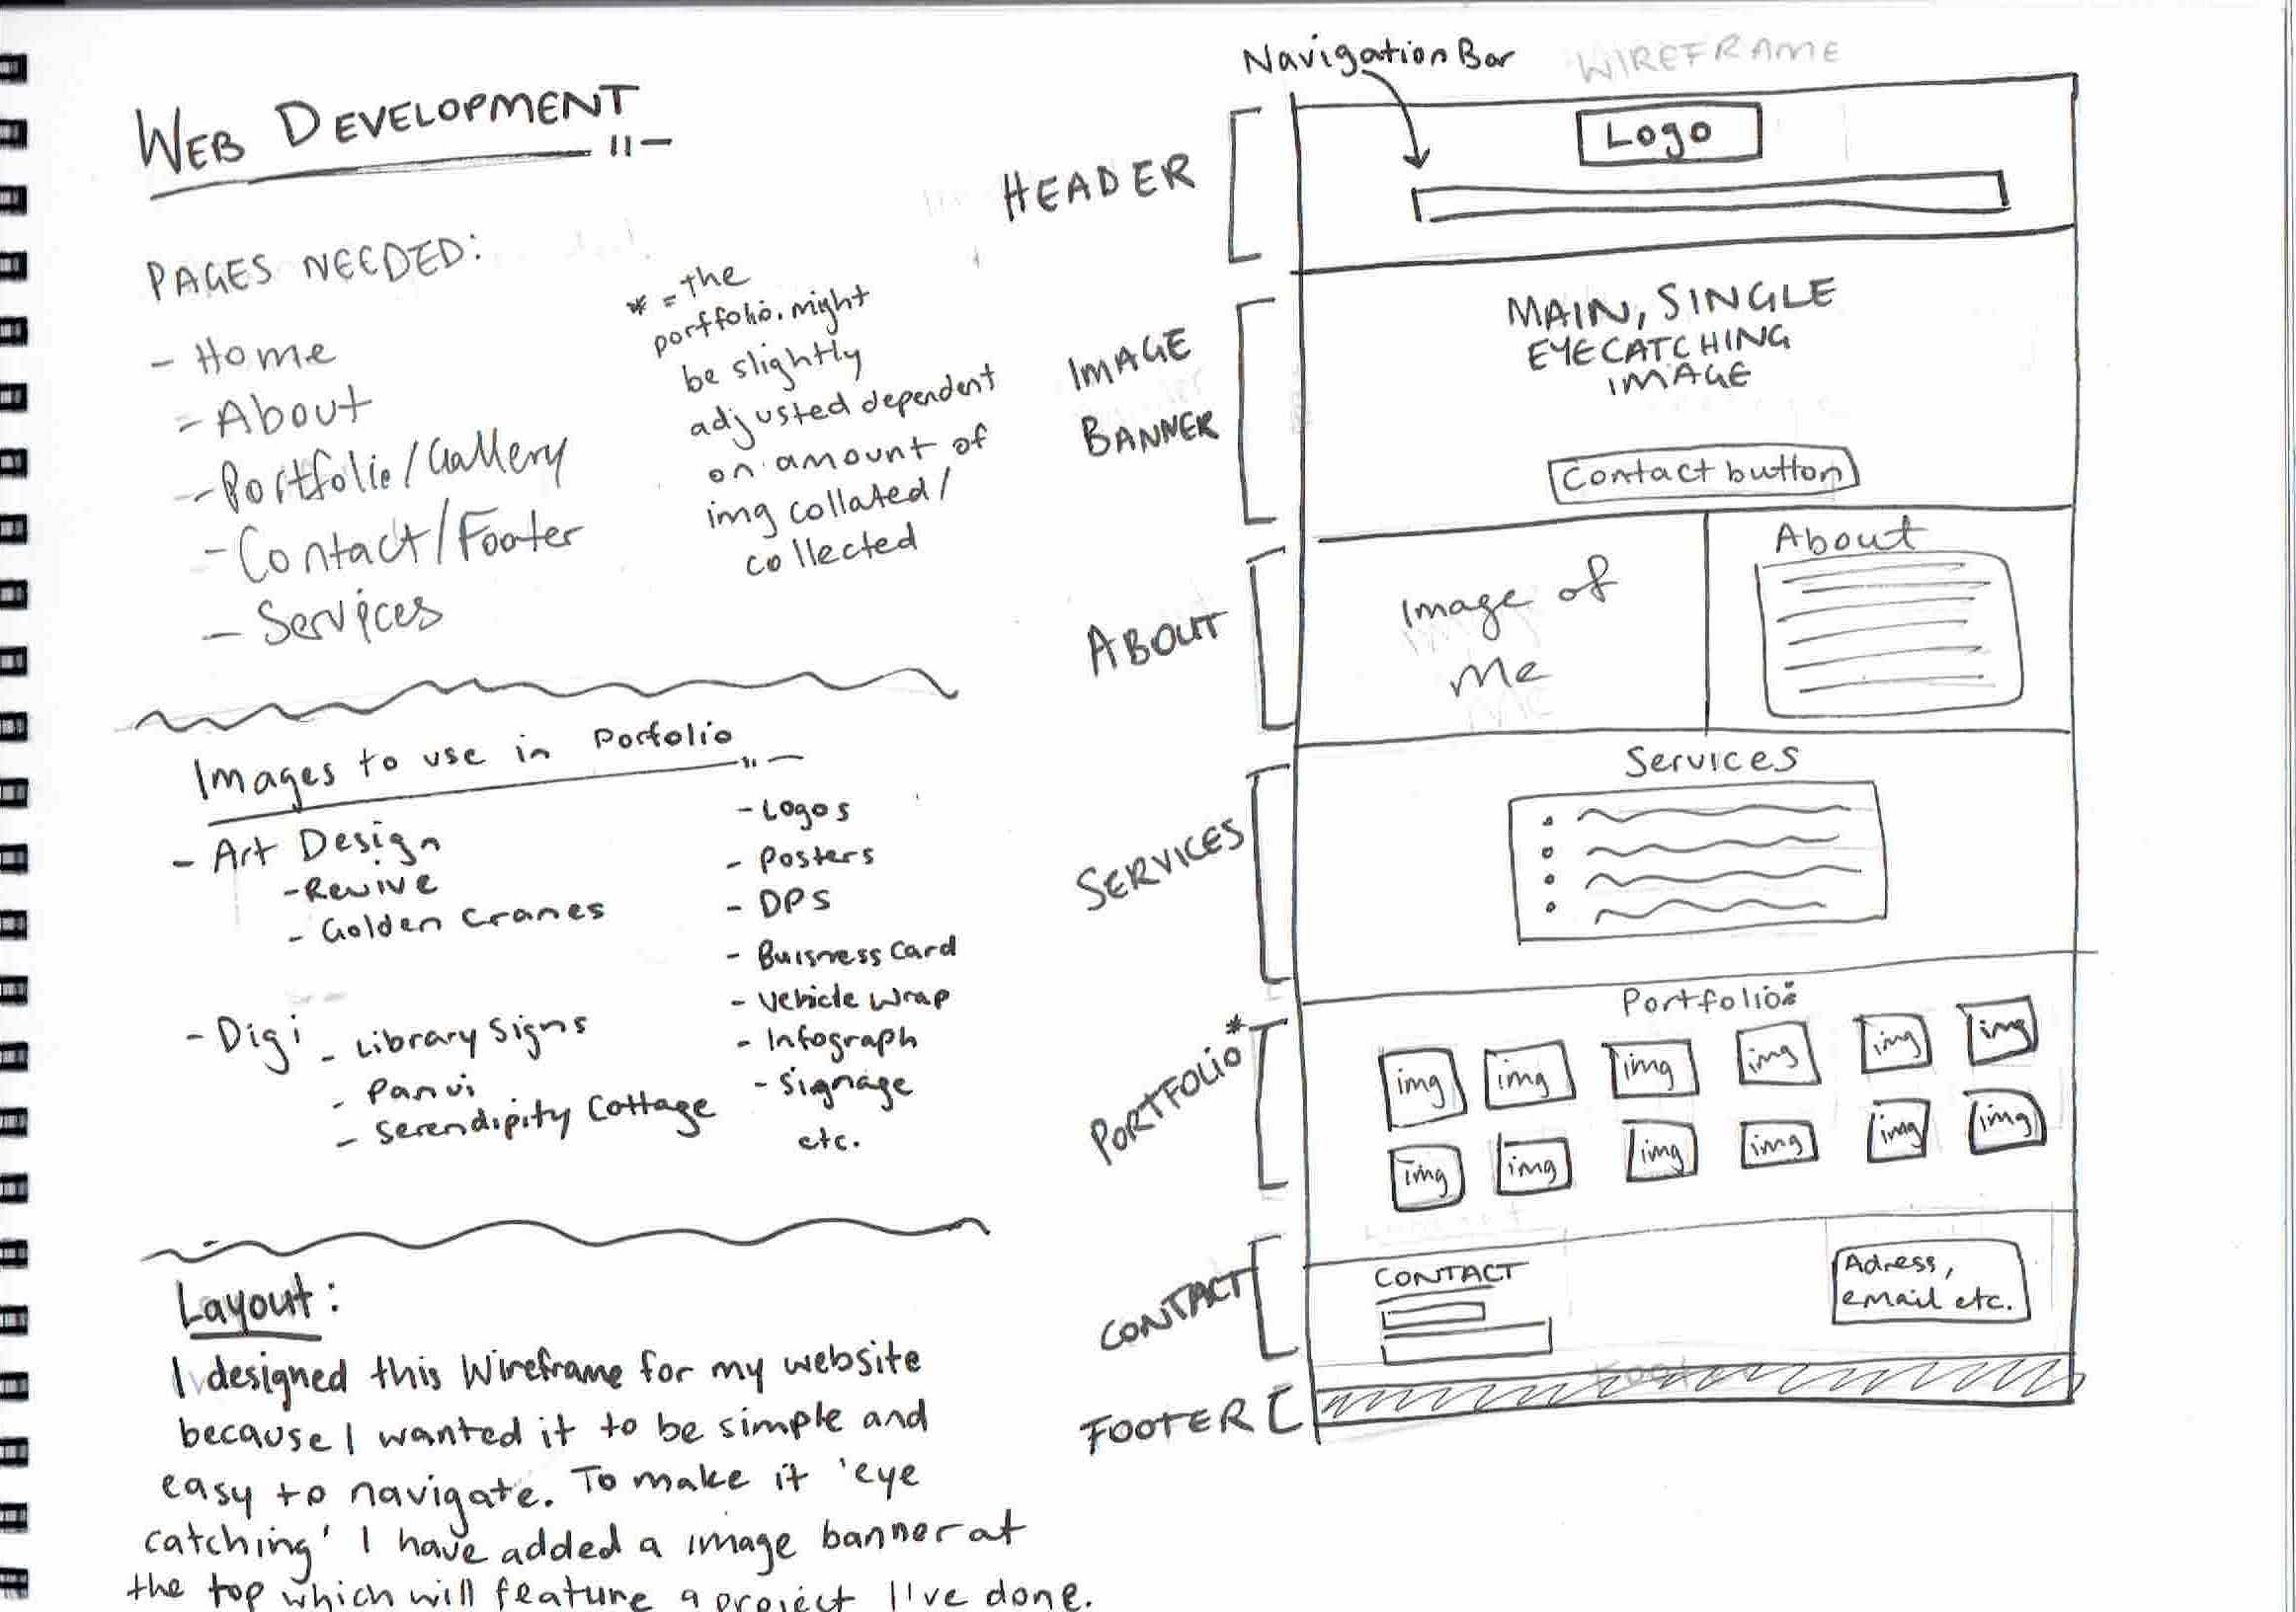 WEB DEVELOPMENT
PAGES NEEDED:
- Home
- About
- Portfolio/Gallery
- Contact/Footer
- Services
* = the
portfolio might
be slightly
adjusted dependent
on amount of
img collated/
collected
Images to use in Porfolio
- Art Design
- Revive
- Golden Cranes
- Digi
- Library Signs
- Panvi
- Serendipity Cottage
- Logos
- Posters
- DPS
- Buisness Card
- Vehicle Wrap
- Infograph
- Signage
etc.
Layout:
I designed this Wireframe for my website
because I wanted it to be simple and
easy to navigate. To make it 'eye
catching' I have added a image banner at
the top which will feature a project I've done.
WIREFRAME
Navigation Bar
HEADER
Logo
IMAGE
BANNER
MAIN, SINGLE
EYECATCHING
IMAGE
Contact button
ABOUT
Image of
Me
About
SERVICES
Services
PORTFOLIO*
Portfolio:
img img img img img img
img img img img img img
CONTACT
CONTACT
Adress,
email etc.
FOOTER